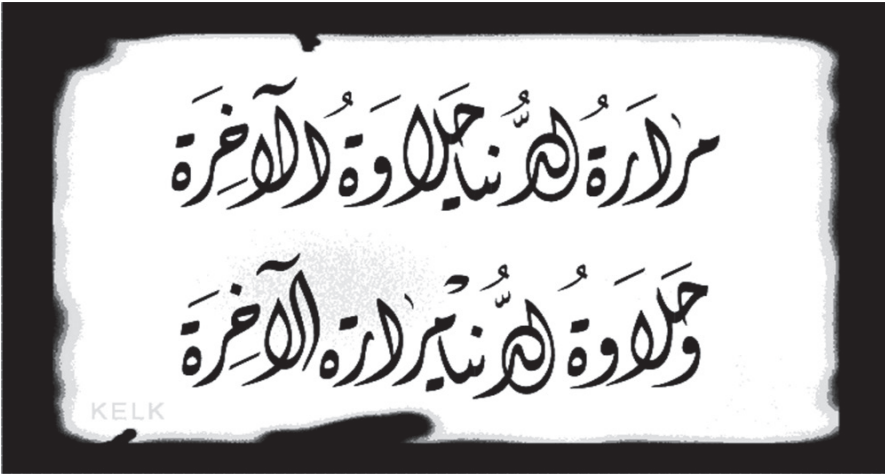 مرارة الدُّنيا حَلاوَةُ الآخِرَة
وحَلَاوَةُ الدُّنيا مرارة الآخِرَة
KELK